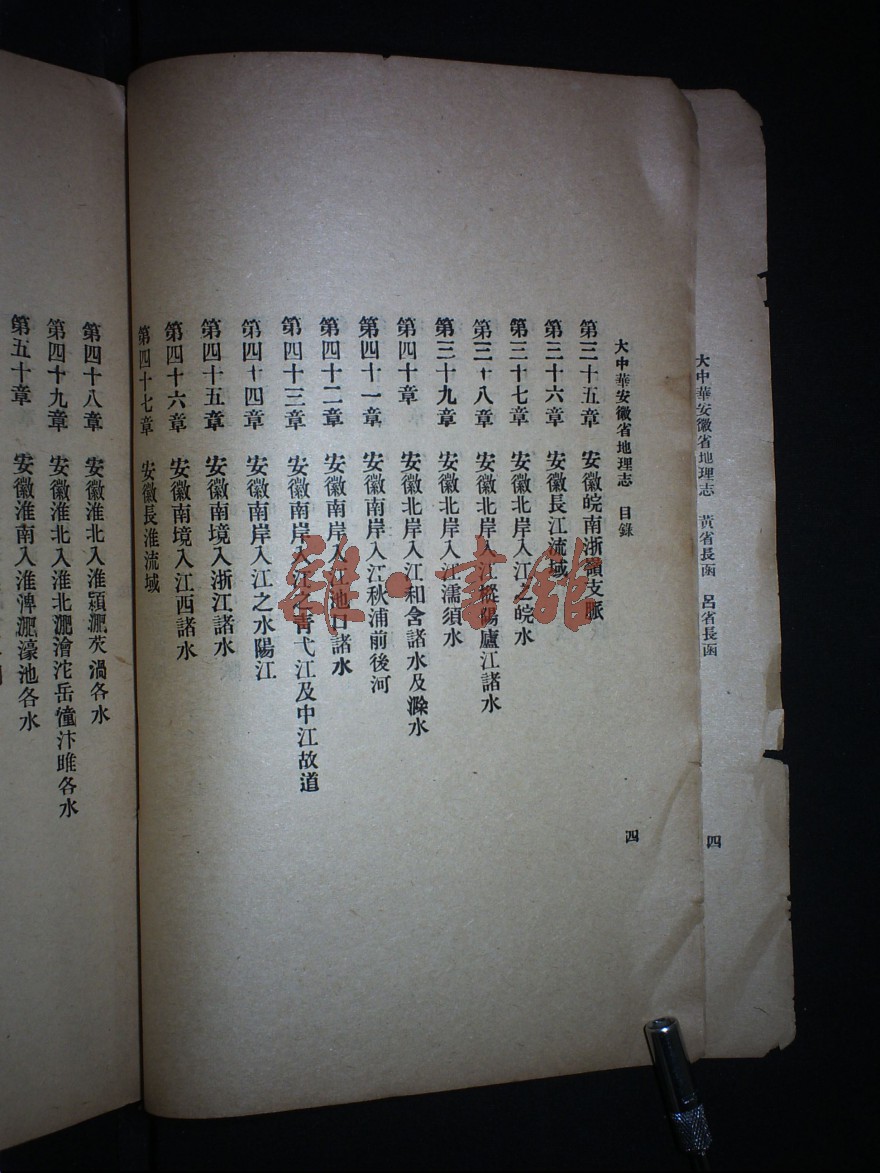 大中華安徽省地理志 黃省長函 呂省長函
四
大中華安徽省地理志 目錄
四
第三十五章 安徽皖南浙嶺支脈
第三十六章 安徽長江流域
第三十七章 安徽北岸入江之皖水
第三十八章 安徽北岸入江樅陽廬江諸水
第三十九章 安徽北岸入江濡須水
第四十章 安徽北岸入江和含諸水及滁水
第四十一章 安徽南岸入江秋浦前後河
第四十二章 安徽南岸入江池口諸水
第四十三章 安徽南岸入江之青弋江及中江故道
第四十四章 安徽南岸入江之水陽江
第四十五章 安徽南境入浙江諸水
第四十六章 安徽南境入江西諸水
第四十七章 安徽長淮流域
第四十八章 安徽淮北入淮潁淝茨渦各水
第四十九章 安徽淮北入淮北淝澮沱岳潼汴睢各水
第五十章 安徽淮南入淮淠淝濠池各水
雜·書館